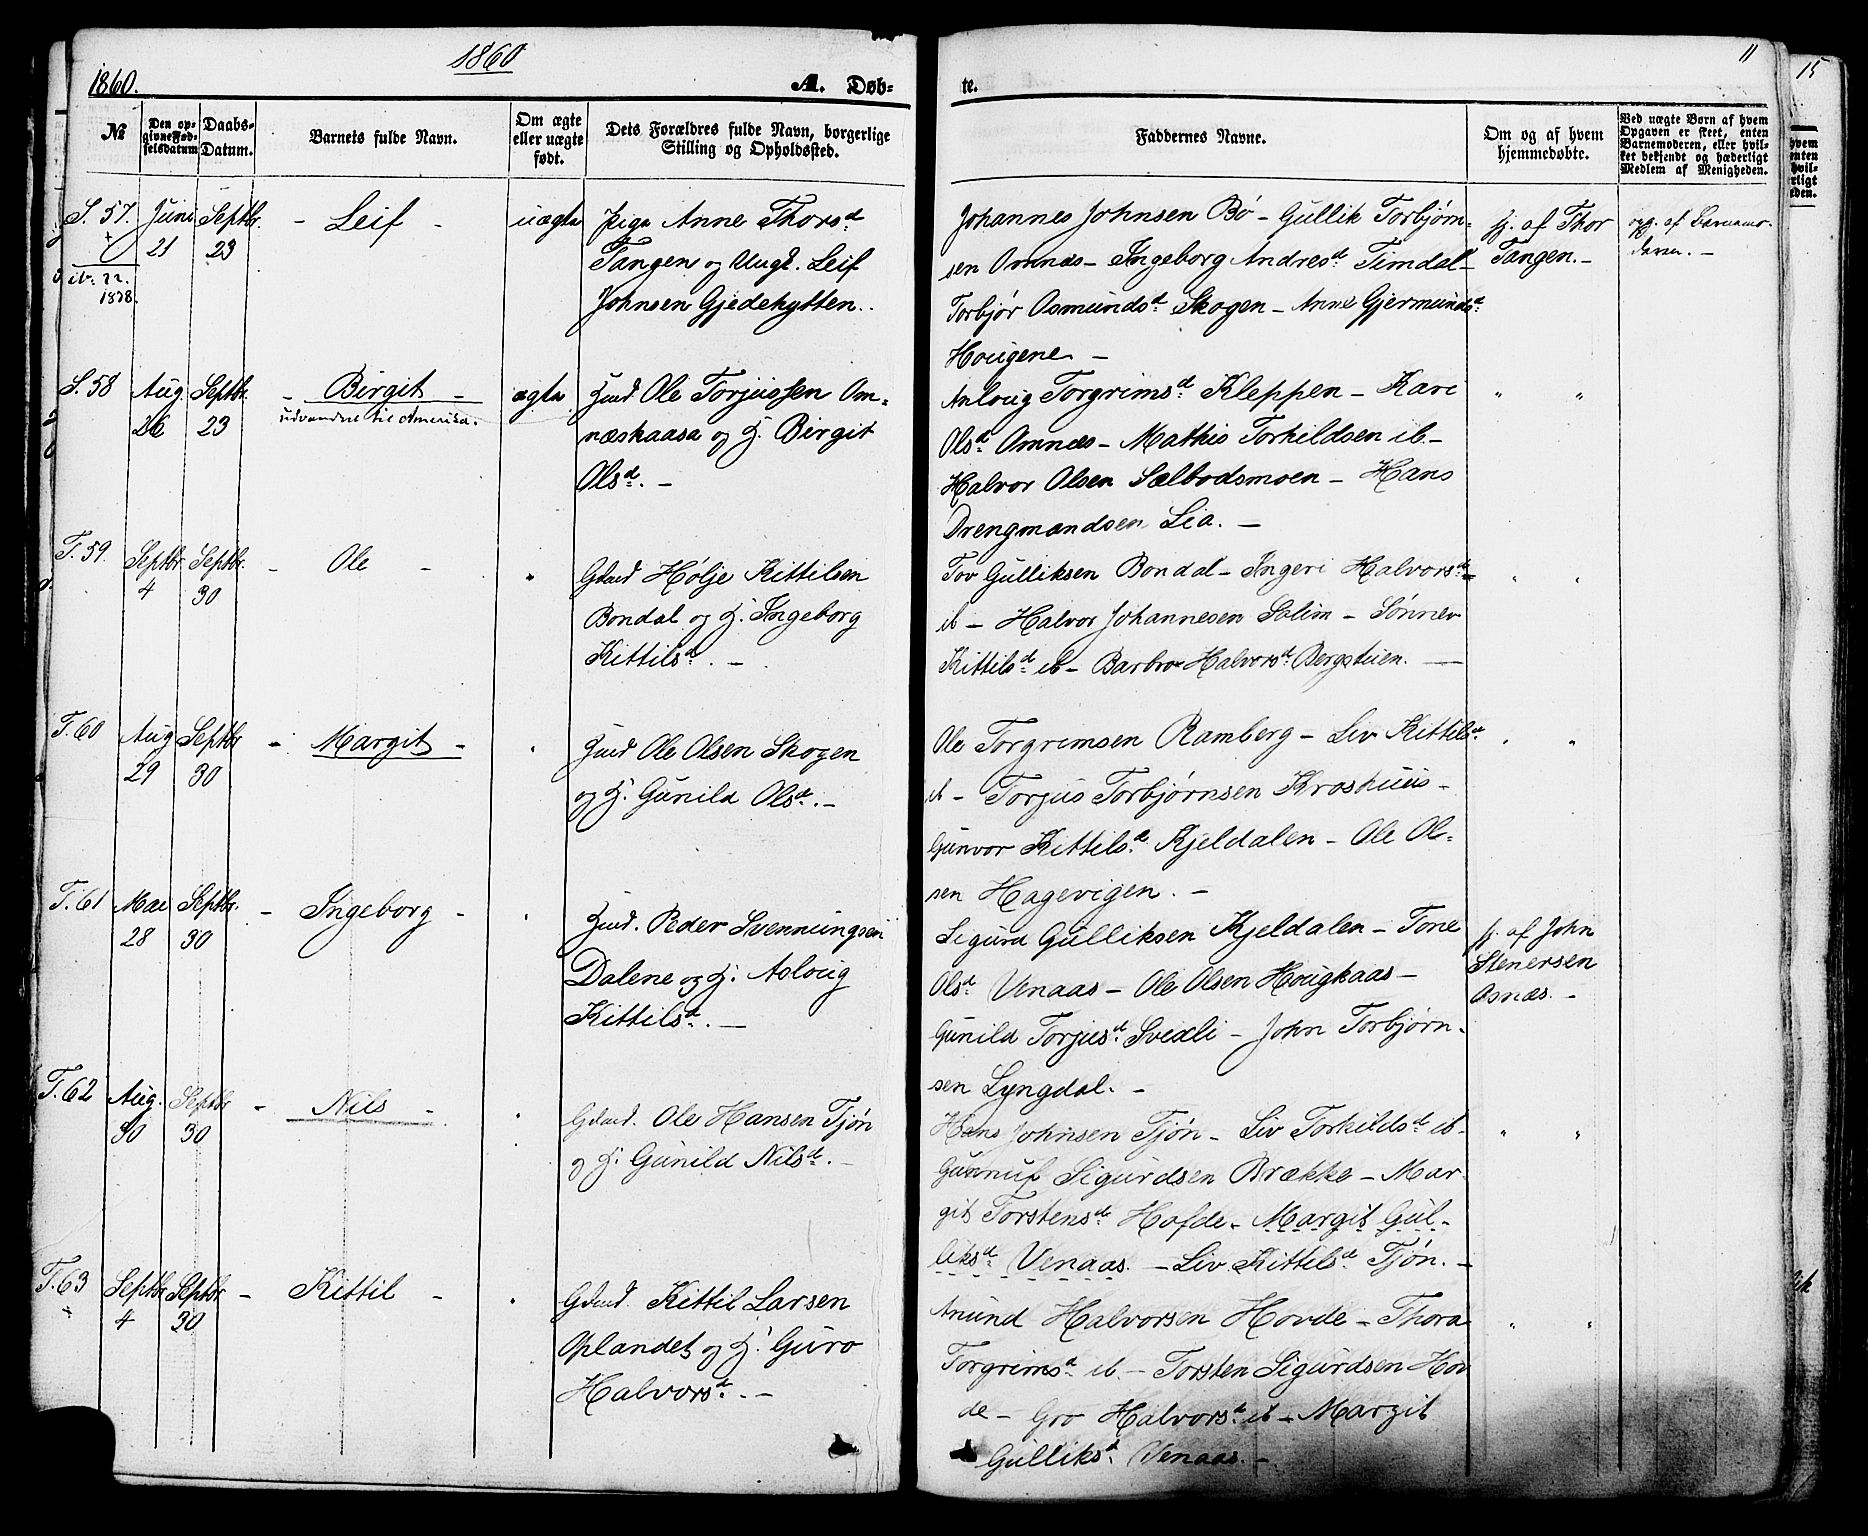 1860
11
15
1860.
A. Døb-
te.
№
Den op-
givne Fød-
selsdatum
Daabs-
Datum.
Barnets fulde Navn.
Om ægte
eller uægte
født.
Dets Forældres fulde Navn, borgerlige
Stilling og Opholdssted.
Faddernes Navne.
Om og af hvem
hjemmedøbte.
Ved uægte Børn af hvem
Opgaven er skeet, enten
Barnemoderen, eller hvil-
ket bekjendt og hæderligt
Medlem af Menigheden.
S. 57.
ib. 22.
1878.
Juni
21
Septbr.
23
- Leif -
uægte
Pige Anne Thorsd
Tangen og Ungk. Leif
Johnsen Gjedehytten.
Johannes Johnsen Bø - Gullik Torbjørn-
sen Omnæs - Ingeborg Andresd Timdal -
Torbjør Osmundsd Skogen - Anne Gjermundsd
Hougene. -
hj. af Thor
Tangen. -
opg. af Barnemo-
deren. -
S. 58
Aug
26
Septbr.
23
- Birgit -
udvandret til Amerika.
ægte
Husd Ole Torjussen Om-
næskaasa og H. Birgit
Olsd. -
Anloug Torgrimsd Kleppen - Kari
Olsd Omnæs - Mathis Torkildsen ib. -
Halvor Olsen Sælbodsmoen - Hans
Drengmandsen Lia. -
" "
T. 59.
Septbr
4
Septbr.
30
- Ole -
"
Gbmd Hølje Kittilsen
Bondal og H. Ingeborg
Kittilsd. -
Tov Gulliksen Bondal - Ingeri Halvorsd
ib - Halvor Johannesen Solim - Sønnev
Kittilsd ib - Barbro Halvorsd Bergstuen. -
" "
T. 60
Aug
29
Septbr
30
- Margit -
"
Husd Ole Olsen Skogen
og H. Gunild Olsd. -
Ole Torgrimsen Ramberg - Liv Kittilsd
ib - Torjus Torbjørnsen Kroshuus -
Gunvor Kittilsd Kjeldalen - Ole Ol-
sen Hagevigen. -
" "
T. 61
Mai
28
Septbr.
30
- Ingeborg -
"
Husd. Peder Svenningsen
Dalene og H. Asloug
Kittilsd. -
Sigurd Gulliksen Kjeldalen - Tone
Olsd Venaas - Ole Olsen Hougkaas -
Gunild Torjusd Svedli - John Torbjørn-
sen Lyngdal. -
hj. af John
Stenersen
Asnæs. -
T. 62
Aug.
30
Septbr
30
- Nils -
"
Gbmd. Ole Hansen Tjøn
og H. Gunild Nilsd. -
Hans Johnsen Tjøn - Liv Torkildsd ib -
Gunnuf Sigurdsen Brække - Mar-
git Torstensd Hofde - Margit Gul-
liksd Venaas. - Liv Kittilsd Tjøn. -
" "
T. 63
Septbr
4
Septbr
30
- Kittil -
"
Gbmd. Kittil Larsen
Oplandet og H. Guro
Halvorsd. -
Anund Halvorsen Hovde - Thora
Torgrimsd ib. - Torsten Sigurdsen Hov
de - Gro Halvorsd ib - Margit
Gulliksd Venaas. -
" "